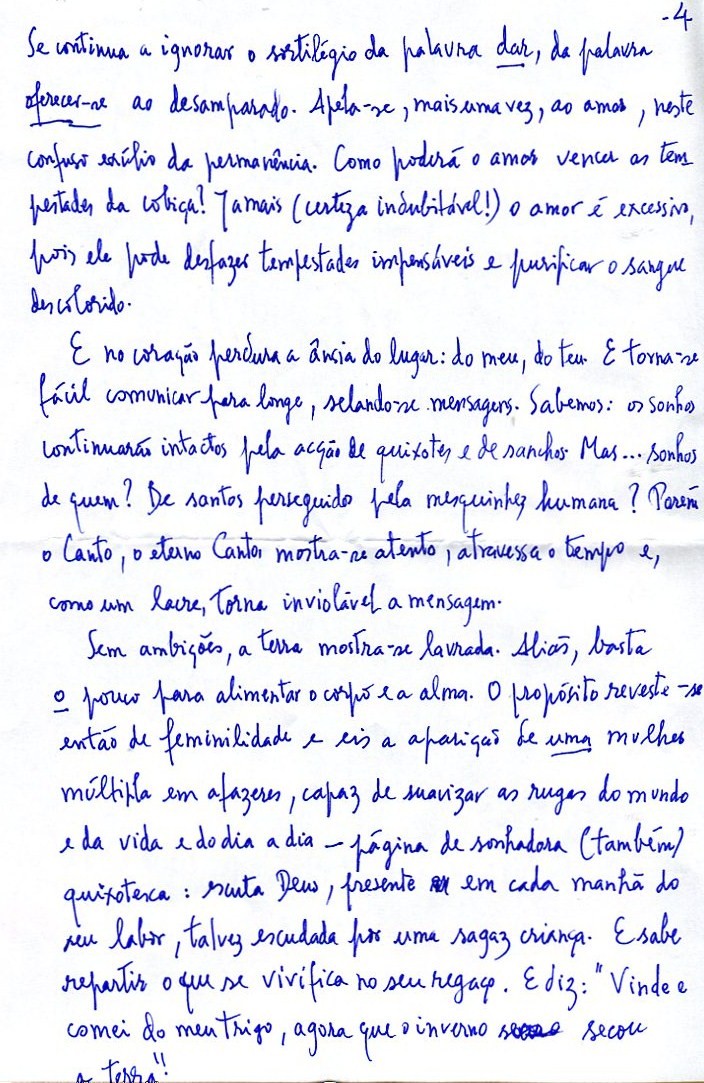 -4
Se continua a ignorar o sortilégio da palavra dar, da palavra
oferecer-se ao desamparado. Apela-se, mais uma vez, ao amor, neste
confuso exílio da permanência. Como poderá o amor vencer as tem_
pestades da cobiça? Jamais (certeza indubitável!) o amor é excessivo,
pois ele pode desfazer tempestades impensáveis e purificar o sangue
descolorido.
E no coração perdura a ânsia do lugar: do meu, do teu. E torna-se
fácil comunicar para longe, selando-se mensagens. Sabemos: os sonhos
continuarão intactos pela acção de quixotes e de sanchos. Mas... sonhos
de quem? De santos perseguido pela mesquinhez humana? Porém
o Canto, o eterno Cantor mostra-se atento, atravessa o tempo e,
como um lacre, torna inviolável a mensagem.
Sem ambições, a terra mostra-se lavrada. Aliás, basta
o pouco para alimentar o corpo e a alma. O propósito reveste-se
então de feminilidade e eis a aparição de uma mulher
múltipla em afazeres, capaz de suavizar as rugas do mundo
e da vida e do dia a dia – página de sonhadora (também)
quixotesca: escuta Deus, presente em cada manhã do
seu labor, talvez escudada por uma sagaz criança. E sabe
repartir o que se vivifica no seu regaço. E diz: "Vinde e
comei do meu trigo, agora que o inverno secou
a terra"!